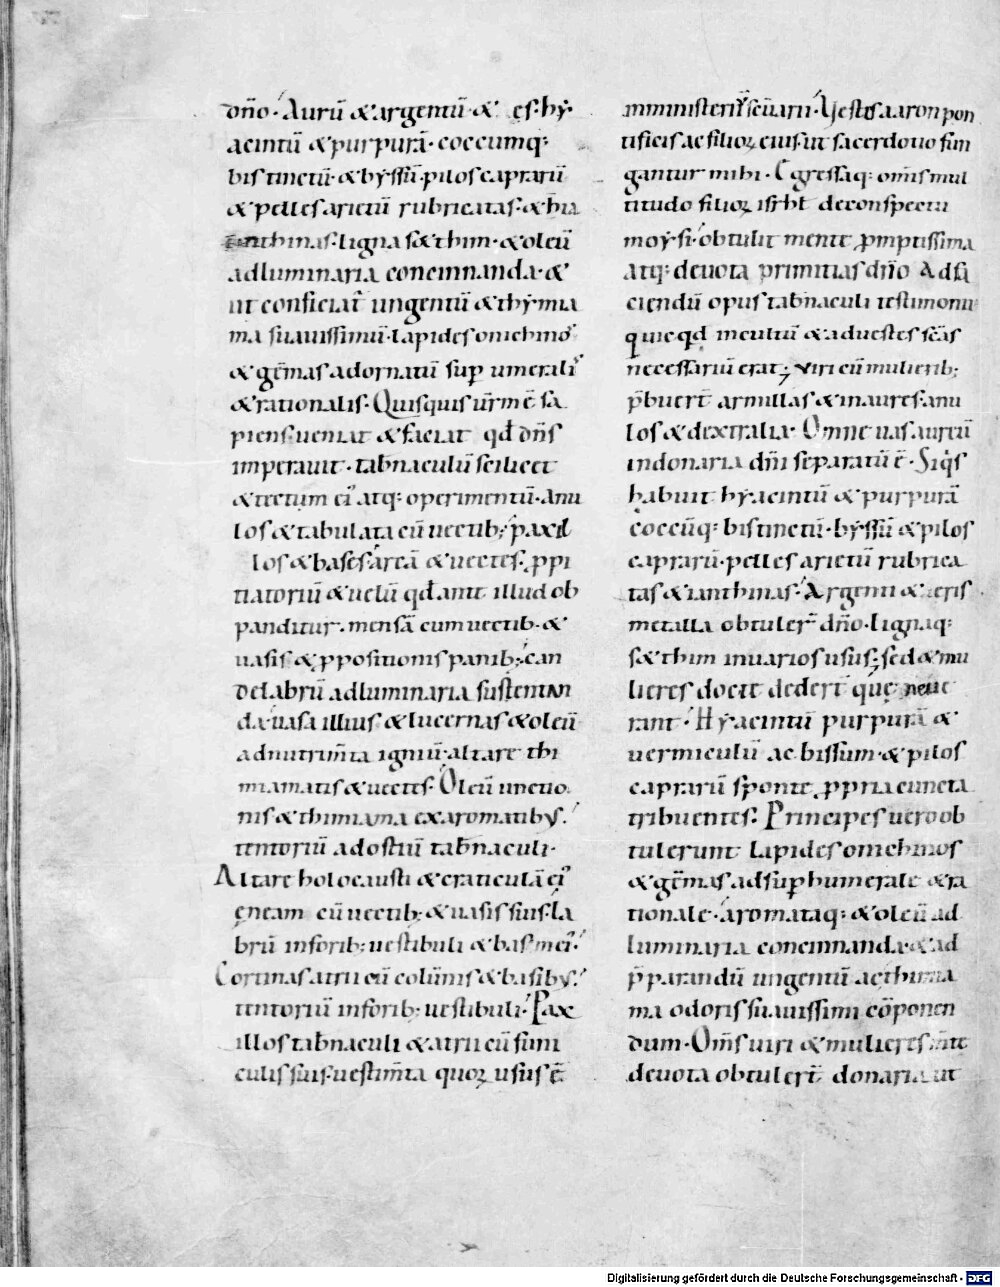 dño · Aurū & argentū · & ęs · hẏ
acintū & purpurā · coccumq;
bis tinctū · & bẏssū · pilos caprarū
& pelles arietū rubricatas · & hia
nthinas · ligna sæthim · & oleū
ad luminaria concinnanda · &
ut conficiat᷑ ungentū & thẏmia
ma suauissimū · lapides onichinoˢ
& gēmas ad ornatū sup umeraliˢ
& rationalis · Quisquis ur̄m ē sa
piens · ueniat & faciat qđ dn̄s
imperauit · tabnaculū scilicet
& tectum eiꝰ atq; operimentū · anu
los & tabulata cū uectib; paxil
los & bases · arcā & uectes · ꝓpi
tiatoriū & uelū qđ ante illud ob
panditur · mensā cum uectib · &
uasis & ꝓpositionis panib; can
delabrū ad luminaria sustentan
da · uasa illius & lucernas & oleū
ad nutrim̄ta igniū · altare thi
miamatis & uectes · Oleū unctio
nis & thimiama ex aromatibꝰ ·
tentoriū ad ostiū tabn̄aculi ·
Altare holocausti & craticulā eiꝰ
ęneam cū uectib; & uasis suis · la
brū
Cortinas atrii cū colūnis & basibꝰ ·
tentoriū in forib; uestibuli · Pax
illos tabn̄aculi & atrii cū funi
culis suis · uestim̄ta quoꝝ usus ē
in ministerio sc̄uarii · Uestes aaron pon
tificis ac filioꝝ eius · ut sacerdotio fun
gantur mihi · Egressaq; om̄is mul
titudo filioꝝ isrhł de conspectu
moẏsi · obtulit mente ꝓmptissima
atq; deuota primitias dn̄o Ad fa
ciendū opus tabn̄aculi testimonii
quicqđ in cultū & ad uestes sc̄as
necessariū erat; viri cū mulierib;
p̄buert̄ armillas & inaures · anu
los & dextralia · Omne uas aureū
in donaria dn̄i separatū ē · Siqⁱs
habuit hẏacintū & purpurā
coccūq; bis tinctū · bẏssū & pilos
caprarū · pelles arietū rubrica
tas & ianthinas · Argenti & aeris
metalla obtuler̄ dn̄o · lignaq;
sæthim in uarios usus; sed & mu
lieres docte dedert̄ quę neue
rant · Hẏacintū purpurā &
uermiculū ac bissum · & pilos
caprarū sponte ꝓpria cuncta
tribuentes · Principes uero ob
tulerunt lapides onichinos
& gēmas ad sup humerale & ra
tionale · aromataq; & oleū ad
luminaria concinnanda · & ad
p̄parandū ungentū ac thimia
ma odoris suauissimi cōponen
dum · Om̄s uiri & mulieres m̄te
deuota obtulert̄ donaria ut
Digitalisierung gefördert durch die Deutsche Forschungsgemeinschaft - DFG